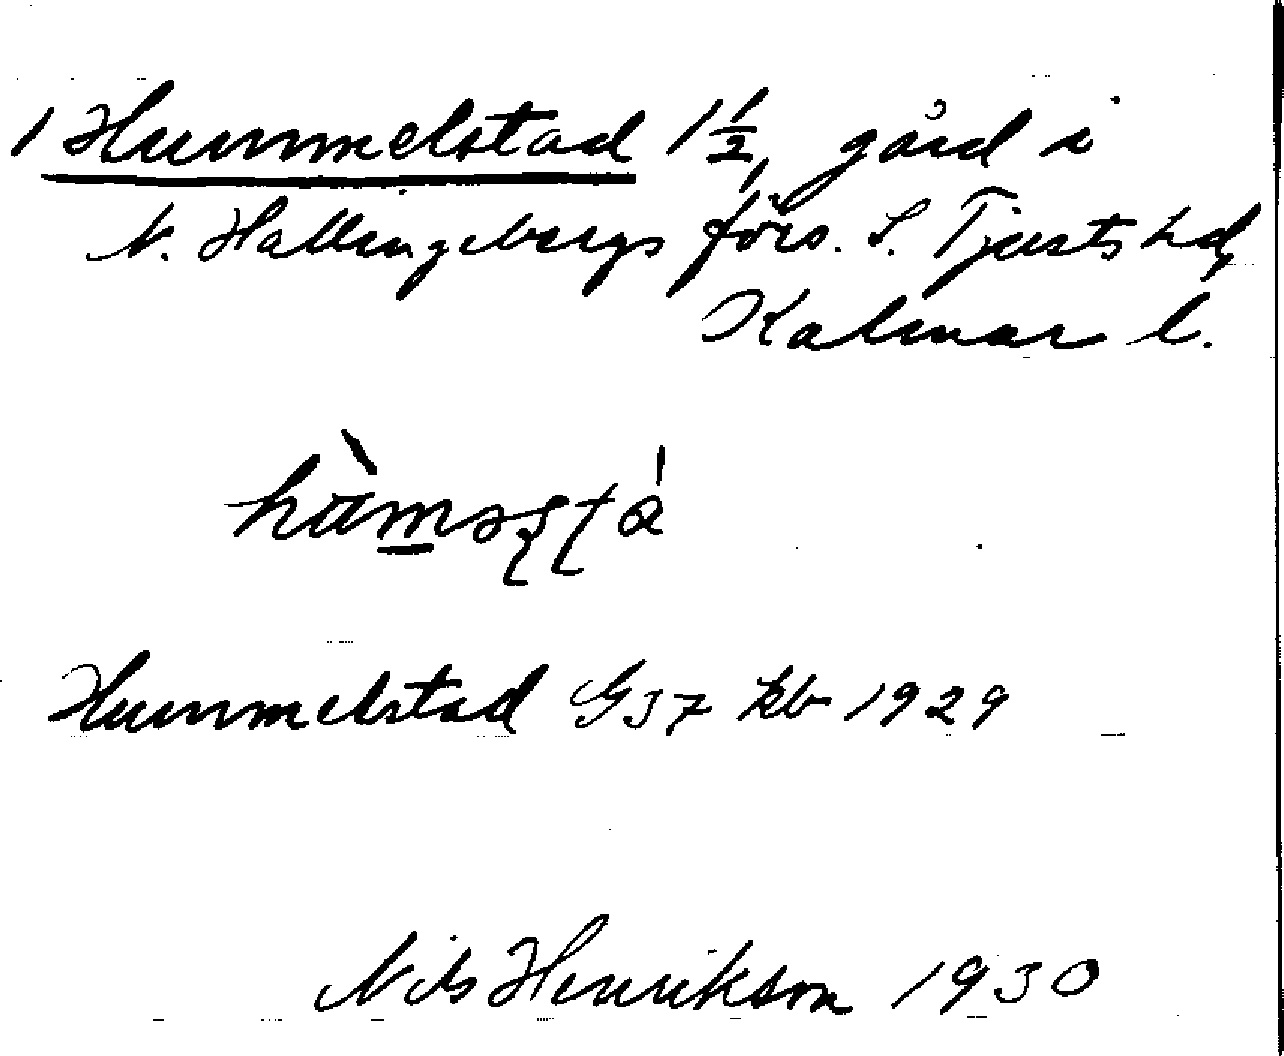 1 Hummelstad 1 1/2, gård i
N. Hallingebergs förs. S. Tjusts hd,
Kalmar l.
Hummelstad G 37 kb 1929
Nils Henrikson 1930